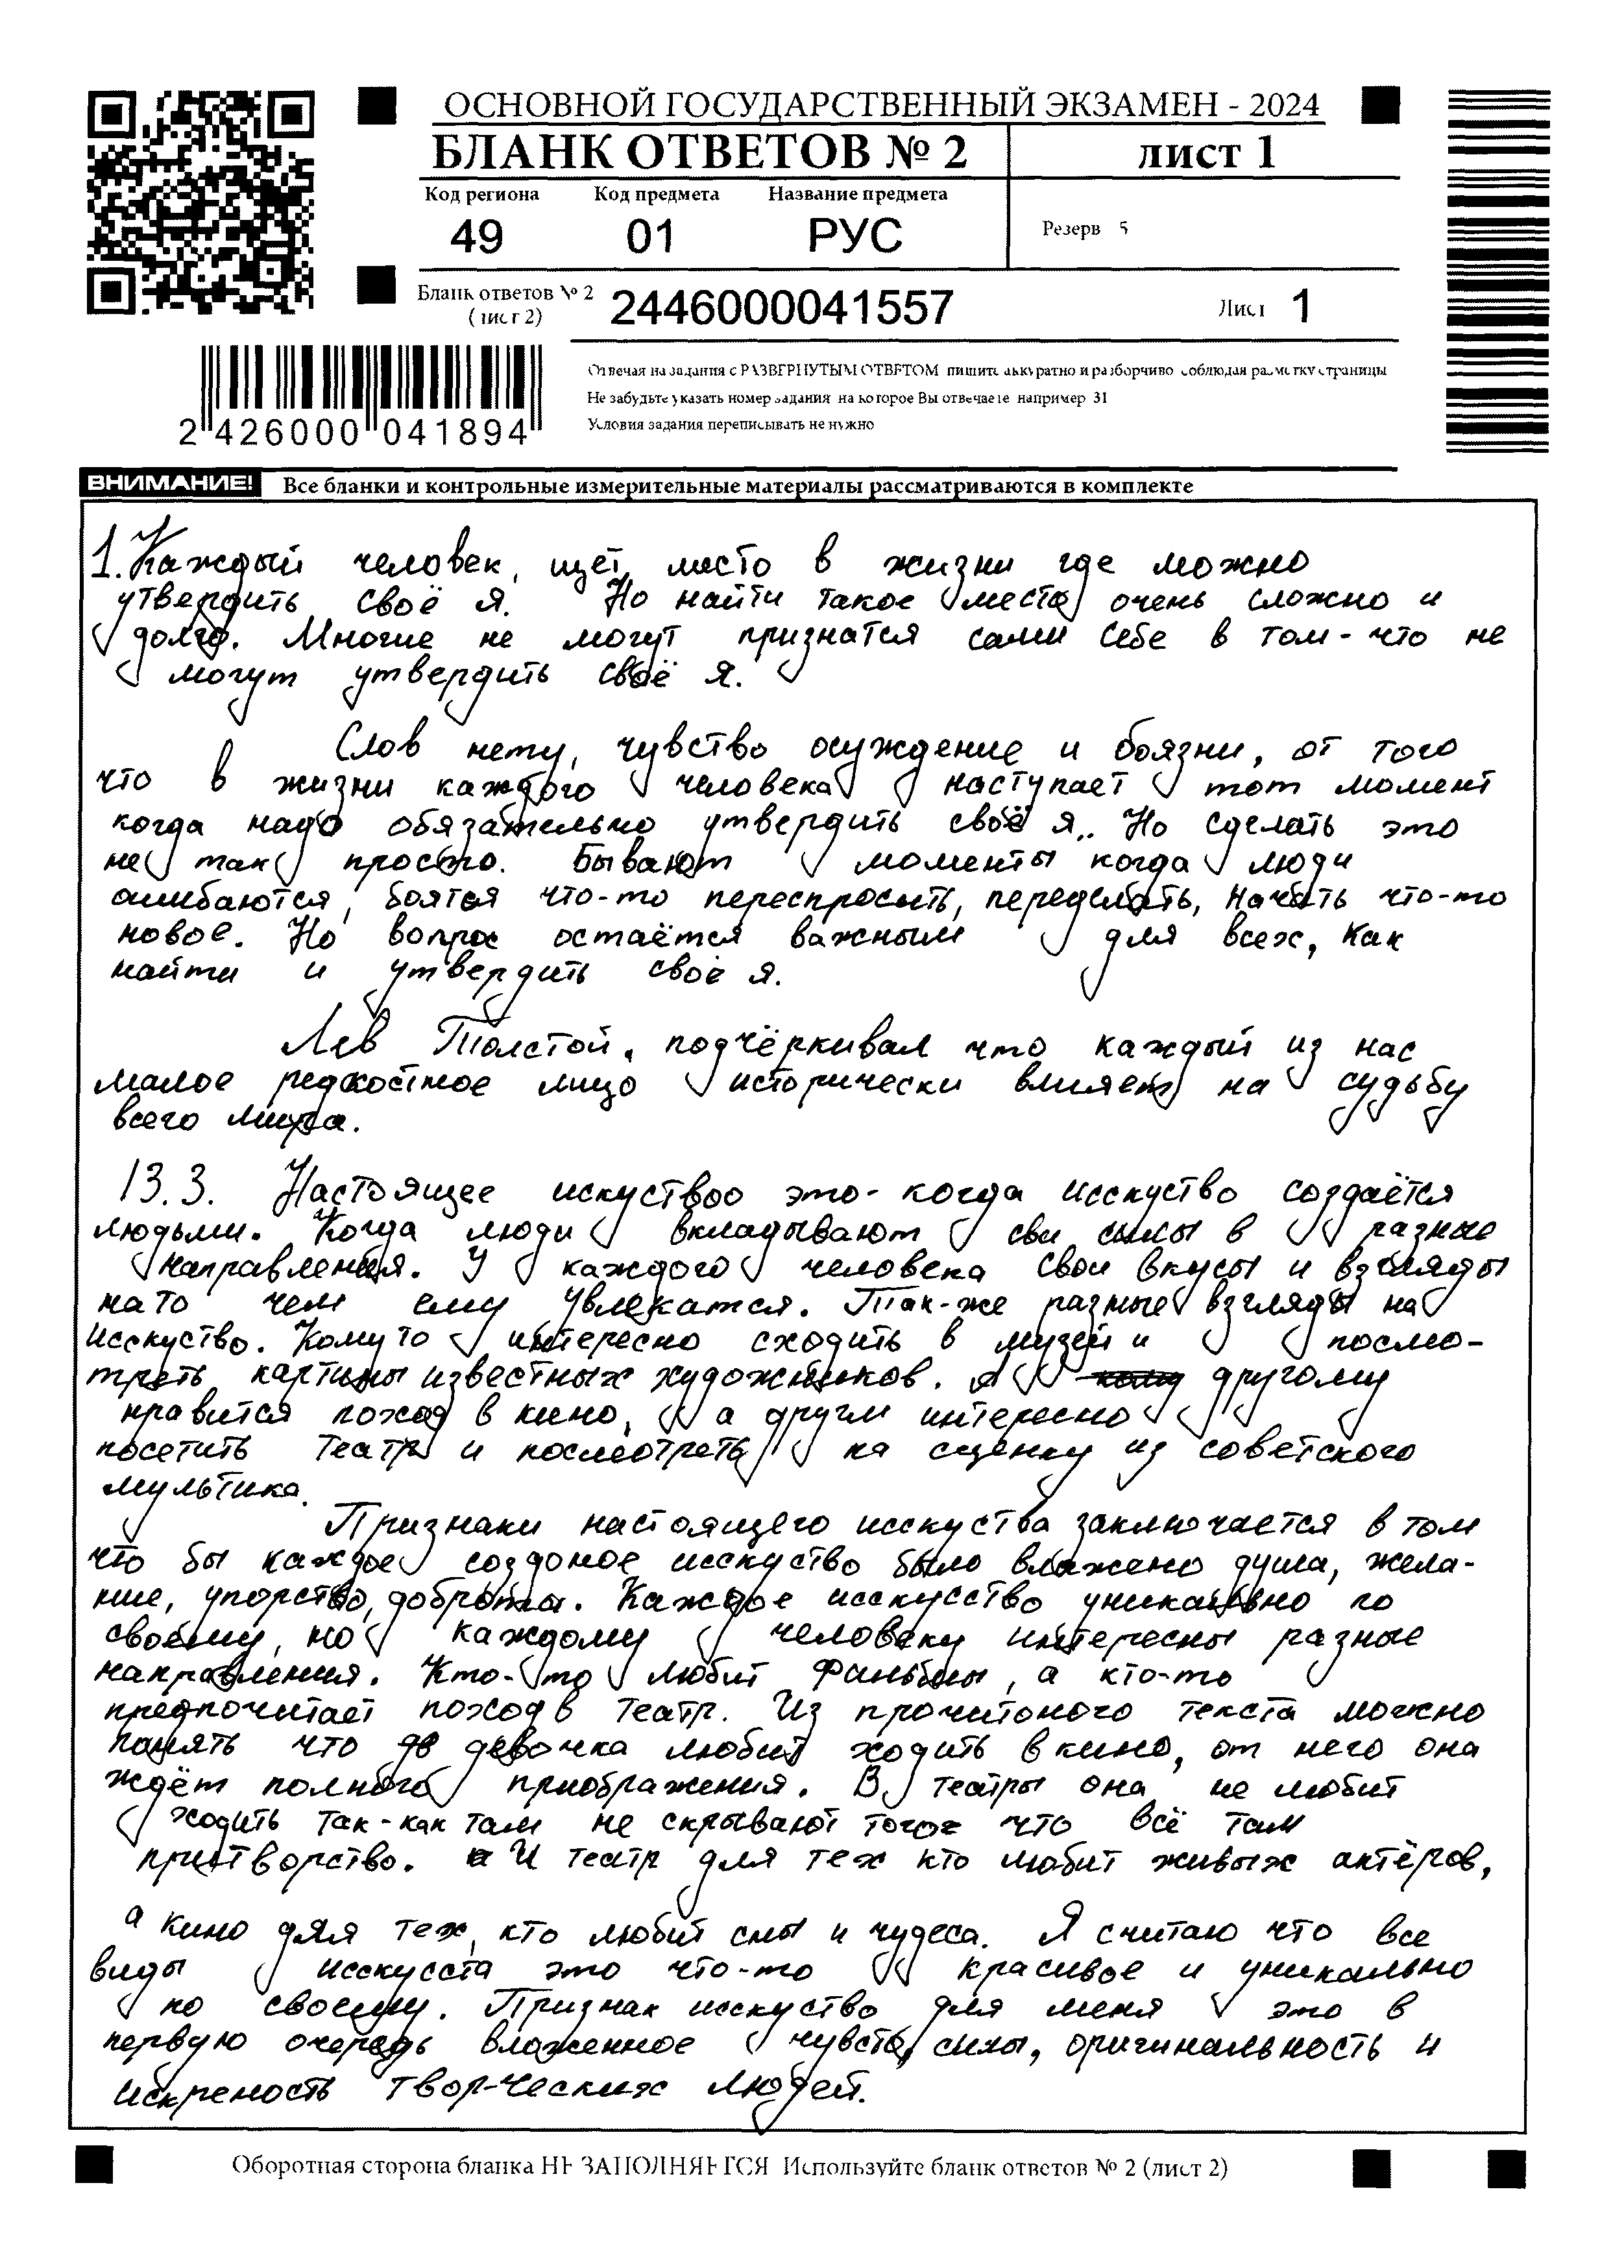 ОСНОВНОЙ ГОСУДАРСТВЕННЫЙ ЭКЗАМЕН - 2024
БЛАНК ОТВЕТОВ № 2
лист 1
Код региона Код предмета Название предмета
49 01 РУС
Резерв 5
Бланк ответов № 2
(лист 2)
2446000041557
Лист 1
2 426000 041894
Отвечая на задания с РАЗВЕРНУТЫМ ОТВЕТОМ пишите аккуратно и разборчиво соблюдая разметку страницы
Не забудьте указать номер задания на которое Вы отвечаете например 31
Условия задания переписывать не нужно
ВНИМАНИЕ! Все бланки и контрольные измерительные материалы рассматриваются в комплекте
1. Каждый человек, ищет место в жизни где можно
утвердить своё я. Но найти такое место очень сложно и
долго. Многие не могут признатся сами себе в том-что не
могут утвердить своё я.
Слов нету, чувство осуждение и боязни, от того
что в жизни каждого человека наступает тот момент
когда надо обязательно утвердить своё я.. Но сделать это
не так просто. Бывают моменты когда люди
ошибаются, боятся что-то переспросить, переделать, начать что-то
новое. Но вопрос остаётся важным для всех, как
найти и утвердить своё я.
Лев Толстой, подчёркивал что каждый из нас
малое редкостное лицо исторически влияет на судьбу
всего мира.
13.3. Настоящее искуствоо это-когда исскуство создаётся
людьми. Когда люди вкладывают сви силы в разные
направления. У каждого человека свои вкусы и взгляды
на то чем ему увлекатся. Так-же разные взгляды на
исскуство. Кому то интересно сходить в музей и посмо-
треть картины известных художников. А другому
нравится поход в кино, а другм интересно
посетить театр и посмотреть на сценку из советского
мультика.
Признаки настоящего исскуства заключается в том
что бы каждое создоное исскуство было вложено душа, жела-
ние, упорство, доброта. Каждое исскусство уникально по
своему, но каждому человеку интересны разные
направления. Кто-то любит фильмы, а кто-то
предпочитает поход в театр. Из прочитоного текста можно
понять что де девочка любит ходить в кино, от него она
ждёт полного приображения. В театры она не любит
ходить так-как там не скрывают того что всё там
притворство. И театр для тех кто любит живых актёров,
а кино для тех, кто любит сны и чудеса. Я считаю что все
виды исскусста это что-то красивое и уникально
по своему. Признак исскуство для меня это в
первую очередь вложенное чувсто, силы, оригинальность и
искреность твор-ческих людей.
Оборотная сторона бланка НЕ ЗАПОЛНЯЕТСЯ Используйте бланк ответов № 2 (лист 2)